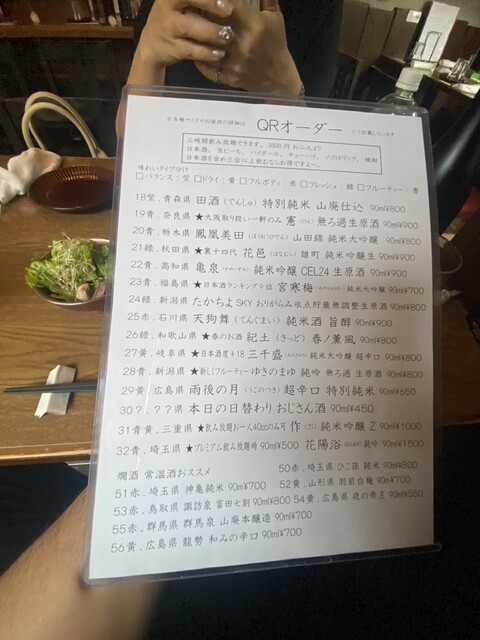 QRオーダー
三時間飲み放題できます。3500円 お二人より
日本酒、生ビール、ハイボール、チューハイ、ソフトドリンク、焼酎
日本酒を含め三合以上飲むならお得ですよー。
味わいタイプ分け
□バランス:堂 □ドライ:黄 □フルボディ:赤 □フレッシュ:緑 □フルーティー:青
18堂、青森県 田酒(でんしゅ) 特別純米 山廃仕込 90ml¥800
19青、奈良県 ★大阪取り扱い一軒のみ 憲(けん) 無ろ過生原酒 90ml¥900
20青、栃木県 鳳凰美田(ほうおうびでん) 山田錦 純米大吟醸 90ml¥800
21緑、秋田県 ★裏十四代 花邑(はなむら) 雄町 純米吟醸生 90ml¥900
22青、高知県 亀泉(かめいずみ) 純米吟醸 CEL24 生原酒 90ml¥900
23青、福島県 ★日本酒ランキング9位 宮寒梅 純米吟醸 90ml¥700
24緑、新潟県 たかちよ SKY おりがらみ氷点貯蔵無調整生原酒 90ml¥800
25赤、石川県 天狗舞(てんぐまい) 純米酒 旨醇 90ml¥900
26緑、和歌山県 ★春のお酒 紀土(きっど) 春ノ薫風 90ml¥800
27黄、岐阜県 ★日本酒度+18 三千盛 純米大吟醸 超辛口 90ml¥800
28青、新潟県 ★新しくフルーティー ゆきのまゆ 純吟 無ろ過 生原酒 90ml¥800
29黄、広島県 雨後の月(うごのつき) 超辛口 特別純米 90ml¥650
30?.?.?県 本日の日替わり おじさん酒 90ml¥450
31青黄、三重県 ★飲み放題お一人40ccのみ可 作(ざく) 純米吟醸 Z 90ml¥1000
32青、埼玉県 ★プレミアム飲み放題時 90ml¥500 花陽浴 純吟 90ml¥1500
燗酒 常温酒おススメ
50赤、埼玉県 ひこ孫 純米 90ml¥800
51赤、埼玉県 神亀純米 90m¥700 52黄、山形県 羽前白梅 90ml¥700
53赤、鳥取県 諏訪泉 富田七割 90ml¥800 54黄、広島県 夜の帝王 90ml¥550
55赤、群馬県 群馬泉 山廃本醸造 90ml¥700
56黄、広島県 龍勢 和みの辛口 90ml¥700